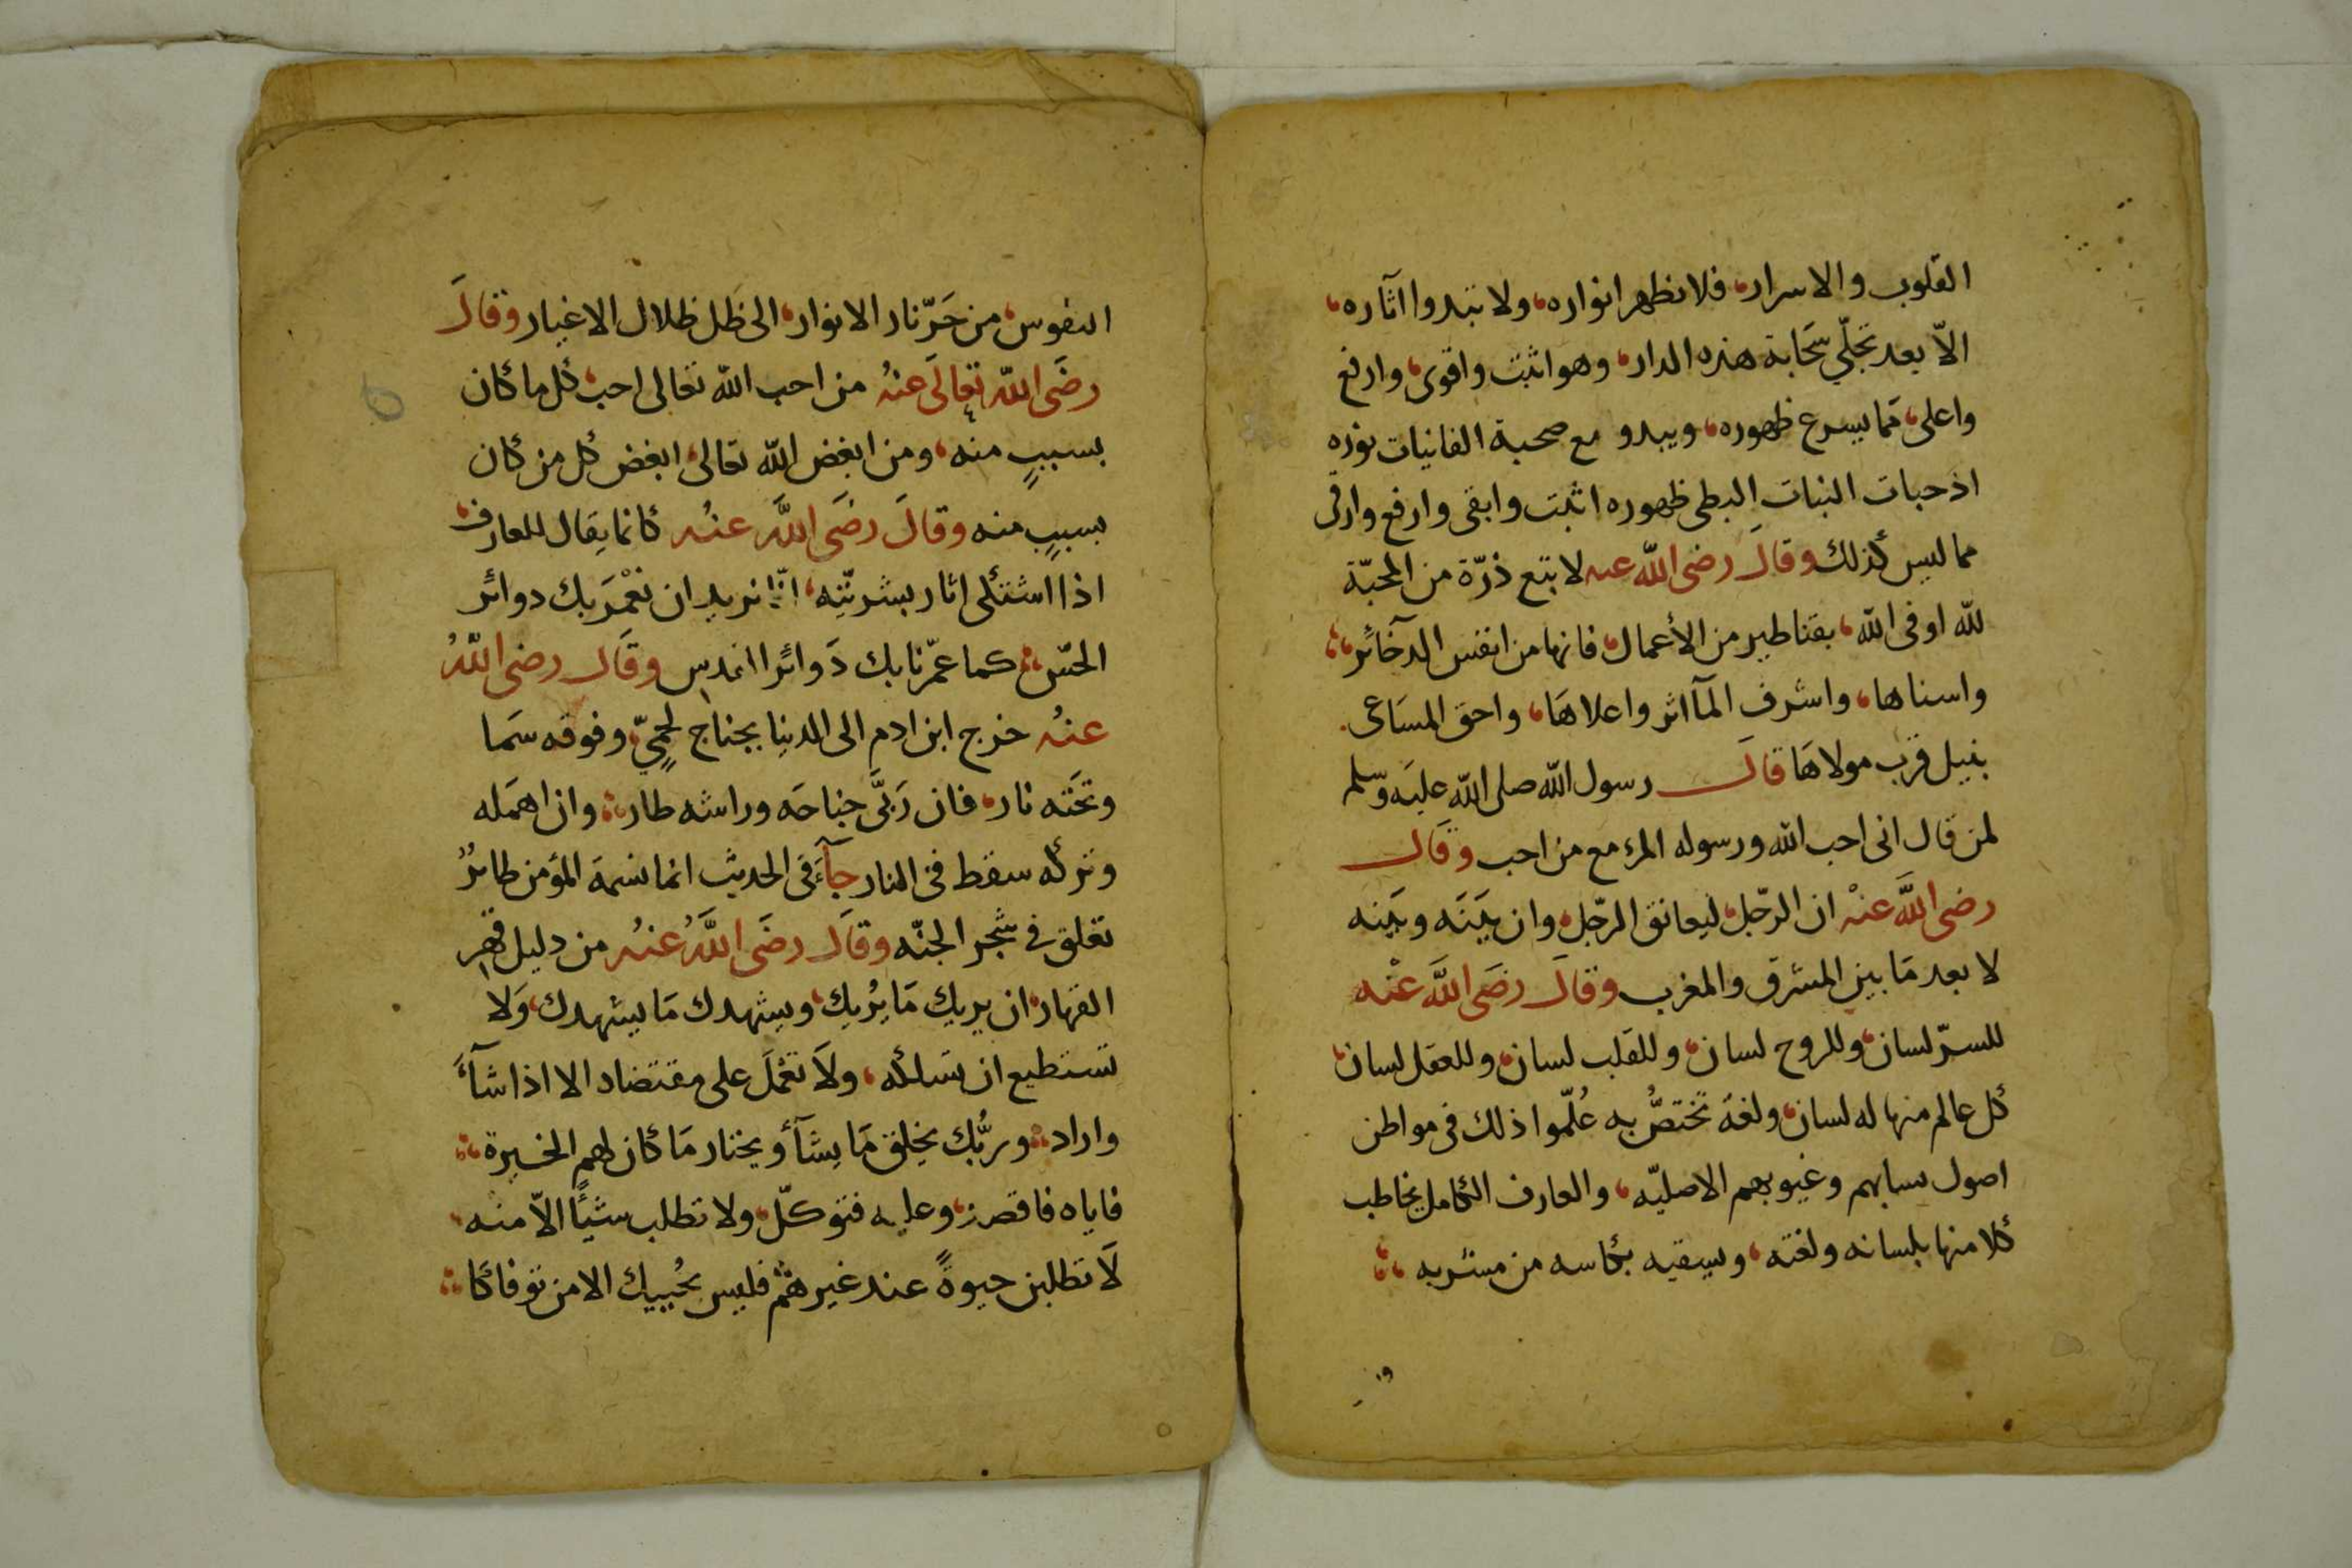 القلوب والاسرار، فلا تظهر انواره، ولا تبدوا آثاره،
الاّ بعد تجلّي سَحَابة هذه الدار، وهو اثبت واقوى، وارفع
واعلى، مما يسرع ظهوره، ويبدو مع صحبة الفانيات نوره
اذ حبات النبات البطى ظهوره اثبت وابقى وارفع وارقى
مما ليس كذلك وقال رضى الله عنه لا تبع ذرّة من المحبّة
لله او فى الله، بقناطير من الأعمال، فانها من انفس الدخآئر،
واسناها، واشرف المآثر واعلاهَا، واحق المسَاعى.
بنيل قرب مولاهَا قال رسول الله صلى الله عليه وسلم
لمن قال انى احب الله ورسوله المرء مع من احب وقَال
رضى اللَّه عنْه ان الرّجل، ليعانق الرّجل، وان بَينَه وبَينه
لا بعد مَا بين المشرق والمغرب وقالَ رضَى اللَّه عنْه
للسرّ لسان، وللروح لسان، وللقلب لسان، وللعقل لسان،
كل عالم منها له لسان، ولغة تختصُّ به عُلّموا ذلك فى مواطن
اصول وغيوبهم الاصليّه، والعارف الكامل يخاطب
كلا منها بلسانه ولغته، ويسقيه بكاسه من مشربه
النفوس، من حَرّ نار الانوار، الى ظَل ظلال الاغيار وقالَ
رضَى الله تعالَى عنهُ من احب الله تعَالى احب، كل ما كان
بسببٍ منه، ومن ابغض الله تعالى، ابغض كل من كان
بسببٍ منه وقالَ رضَى اللَّه عنْه كانما يقال للعارف،
اذا اشتكى اثار بشريّتِه، انّا نريد ان نعْمَر بك دوائر
الحسّ، كما عمّرنا بك دَوائر القدس وقَال رضى اللهُ
عنهُ خرج ابن ادم الى الدنيا بجناح لحميّ، وفوقه سَما
وتحَته نار، فان رَبَّى جناحَه وراشه طار، وان اهمَله
وتركه سقط فى النار جآءَ فى الحديث انما نسمة المؤمن طائرٌ
تعلق في شجر الجنّه وقَال رضَى اللَّهُ عنهُ من دليل قهر
القهار، ان يريك مَا يُريك، ويشهدك مَا يشهدك، وَلا
تستطيع ان تسَلكه، ولاَ تعْمَلَ على مقتضاه الا اذا شآءَ
واراد، وربُّك يخلق مَا يشَآء ويختار مَا كان لهم الخيرة
فاياه فاقصد، وعليه فتوكّل، ولا تطلب شئًا الاّ منه
لاَ تطلبن حيوةً عند غيرهمُ فليس يُحييك الا من توفاكا